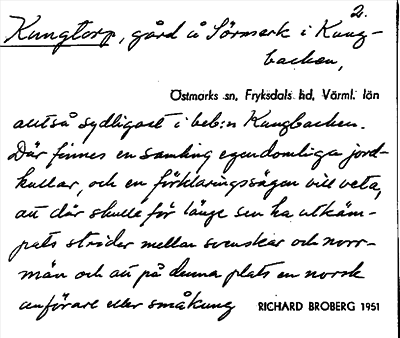 2.
Kungtorp, gård å Sörmark i Kung-
backen,
Östmarks sn, Fryksdals hd, Värml. län
alltså sydligast i beb:n Kungbacken.
Där finnes en samling egendomliga jord-
kullar, och en förklaringssägen vill veta,
att där skulle för länge sen ha utkäm-
pats strider mellan svenskar och norr-
män och att på denna plats en norsk
anförare eller småkung RICHARD BROBERG 1951